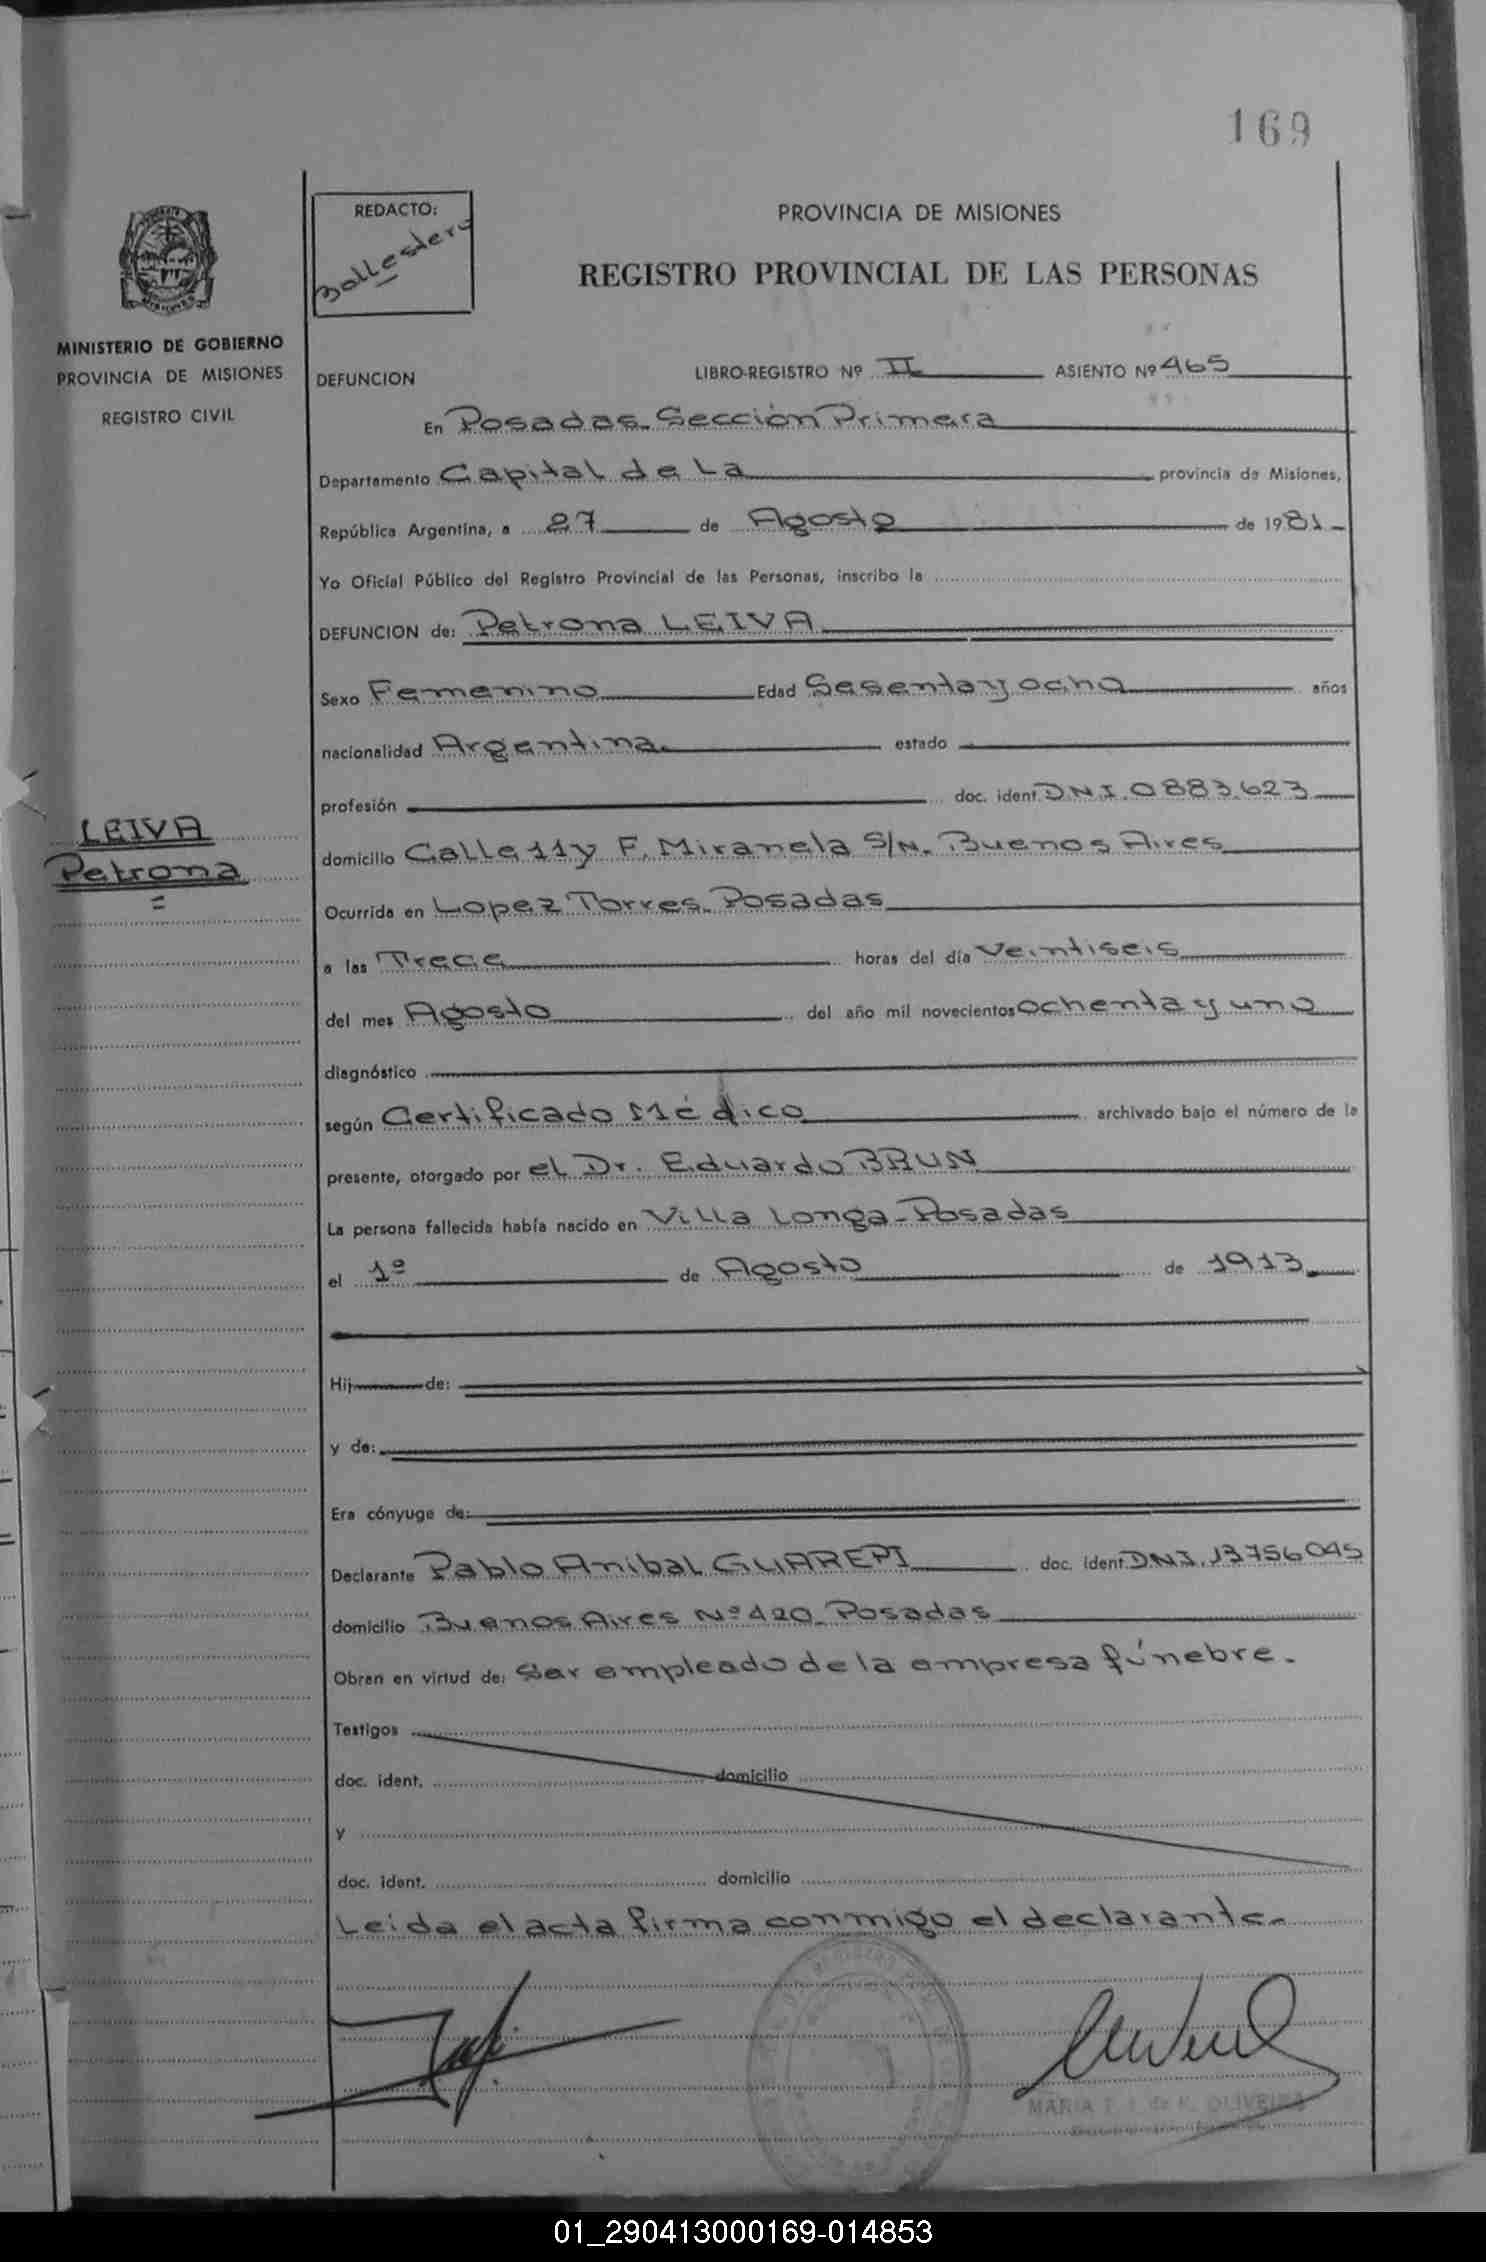 169
REDACTO:
Ballestero
PROVINCIA DE MISIONES
REGISTRO PROVINCIAL DE LAS PERSONAS
MINISTERIO DE GOBIERNO
PROVINCIA DE MISIONES
REGISTRO CIVIL
DEFUNCION LIBRO-REGISTRO Nº II ASIENTO Nº 465
En Posadas Sección Primera
Departamento Capital de La provincia de Misiones,
República Argentina, a 27 de Agosto de 1981
Yo Oficial Público del Registro Provincial de las Personas, inscribo la
DEFUNCION de: Petrona LEIVA
Sexo Femenino Edad Sesenta y ocho años
nacionalidad Argentina estado
profesión doc. ident. DNI. 0883.623
LEIVA
Petrona
domicilio Calle 11 y F. Miranela S/N. Buenos Aires
Ocurrida en Lopez Torres. Posadas
a las Trece horas del día Veintiseis
del mes Agosto del año mil novecientos ochenta y uno
diagnóstico
según Certificado Médico archivado bajo el número de la
presente, otorgado por el Dr. Eduardo BRUN
La persona fallecida había nacido en Villa Longa-Posadas
el 1º de Agosto de 1913
Hij de:
y de:
Era cónyuge de:
Declarante Pablo Anibal GUAREPI doc. ident. DNI. 13756045
domicilio Buenos Aires Nº 420 Posadas
Obran en virtud de: Ser empleado de la empresa fúnebre.
Testigos
doc. ident. domicilio
y
doc. ident. domicilio
Leida el acta firma conmigo el declarante.
MARIA OLIVEIRA
01_290413000169-014853